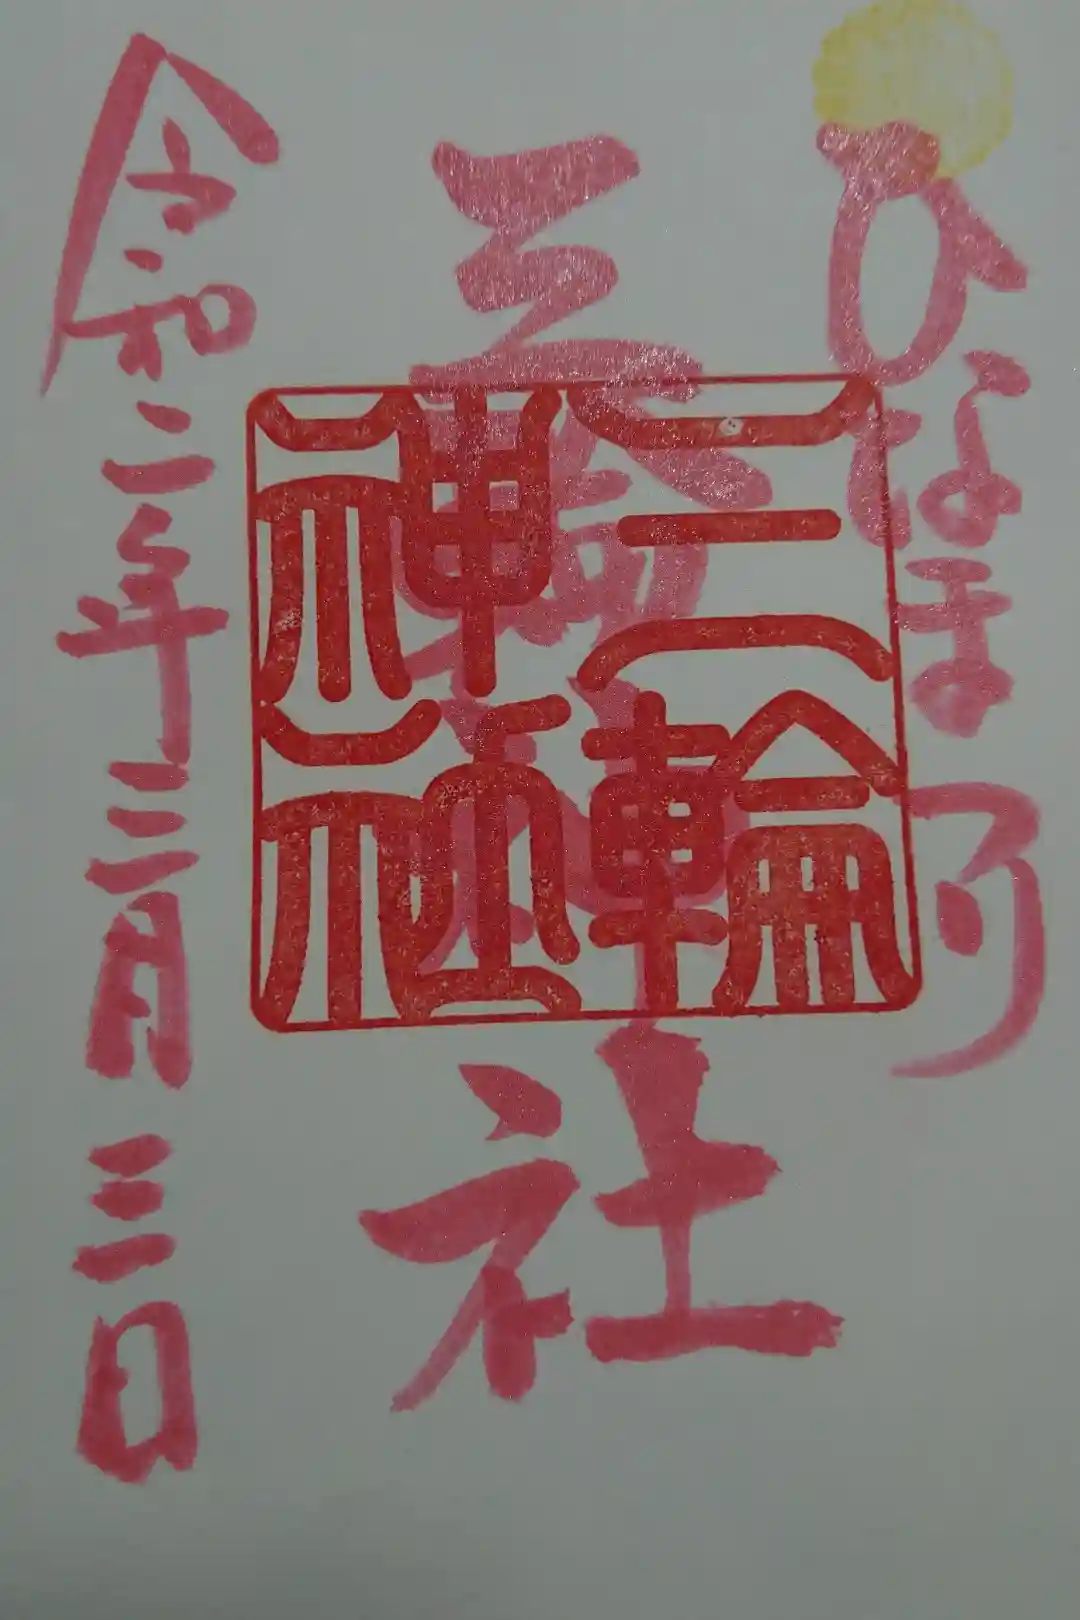 ひなまつり
三輪神社
三輪神社
令和二年三月三日